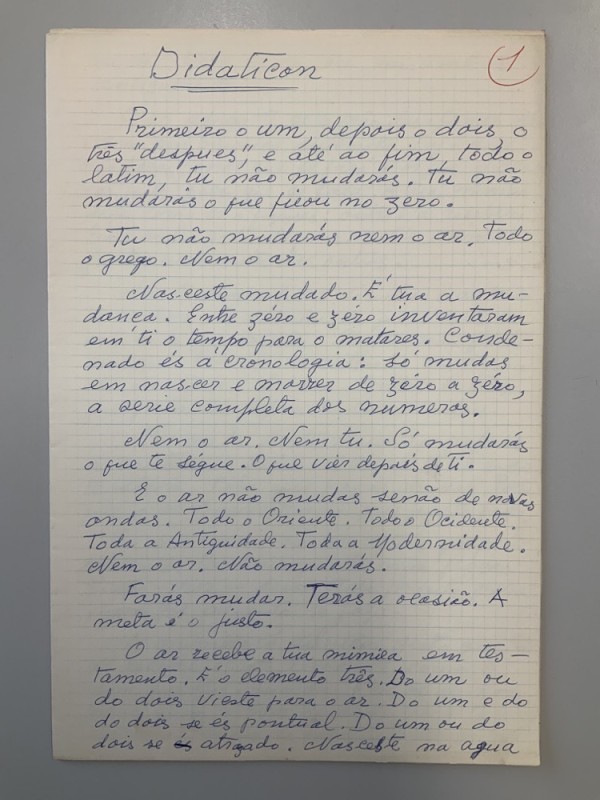 Didaticon
1
Primeiro o um, depois o dois, o
três "despues", e até ao fim, todo o
latim, tu não mudarás. Tu não
mudarás o que ficou no zero.
Tu não mudarás nem o ar. Todo
o grego. Nem o ar.
Nasceste mudado. É tua a mu-
dança. Entre zéro e zéro inventaram
em ti o tempo para o matares. Conde-
nado és á cronologia: só mudas
em nascer e morrer de zéro a zéro,
a serie completa dos numeros.
Nem o ar. Nem tu. Só mudarás
o que te ségue. O que vier depois de ti.
E o ar não mudas senão de novas
ondas. Todo o Oriente. Todo o Ocidente.
Toda a Antiguidade. Toda a Modernidade.
Nem o ar. Não mudarás.
Farás mudar. Terás a ocasião. A
meta é o justo.
O ar recebe a tua mimica em tes-
tamento. É o elemento três. Do um ou
do dois vieste para o ar. Do um e do
do dois se és pontual. Do um ou do
dois se és atrazado. Nasceste na agua